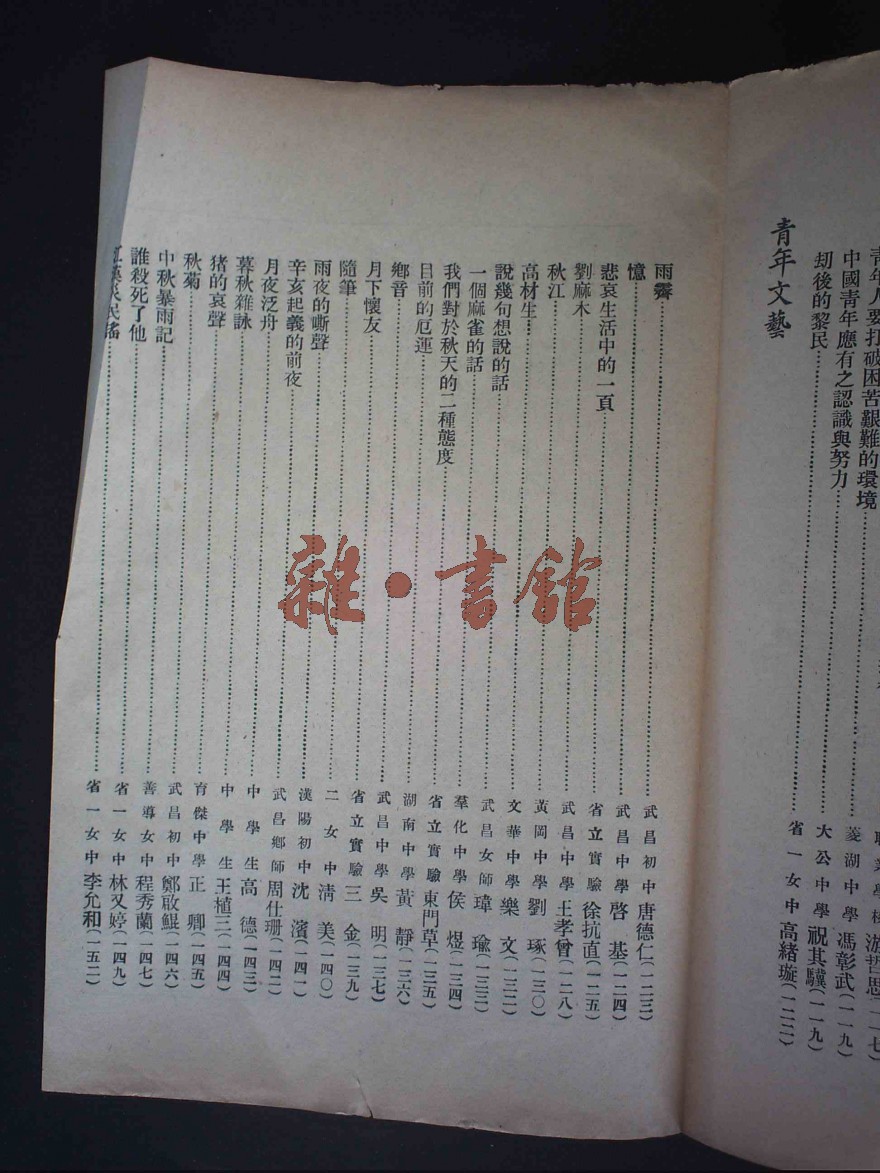 游哲思(一一七)
青年人要打破困苦艱難的環境……菱湖中學 馮彰武(一一九)
中國青年應有之認識與努力……大公中學 祝其驥(一一九)
劫後的黎民……省一女中 高緒璇(一二二)
青年文藝
雨霽……武昌初中 唐德仁(一二三)
憶……武昌中學 啓基(一二四)
悲哀生活中的一頁……省立實驗 徐抗直(一二五)
劉麻木……武昌中學 王孝曾(一二八)
秋江……黃岡中學 劉琢(一三〇)
高材生……文華中學 樂文(一三二)
說幾句想說的話……武昌女師 瑋瑜(一三三)
一個麻雀的話……羣化中學 侯煜(一三四)
我們對於秋天的二種態度……省立實驗 東門草(一三五)
目前的厄運……湖南中學 黃靜(一三六)
鄉音……武昌中學 吳明(一三七)
月下懷友……省立實驗 三金(一三九)
隨筆……二女中 清美(一四〇)
雨夜的嘶聲……漢陽初中 沈濱(一四一)
辛亥起義的前夜……武昌鄉師 周仕珊(一四二)
月夜泛舟……中學生 高德(一四三)
暮秋雜詠……中學生 王植三(一四四)
猪的哀聲……育傑中學 正卿(一四五)
秋菊……武昌初中 鄭敢鯤(一四六)
中秋暴雨記……善導女中 程秀蘭(一四七)
誰殺死了他……省一女中 林又婷(一四九)
江漢災民謠……省一女中 李允和(一五二)
雜·書館